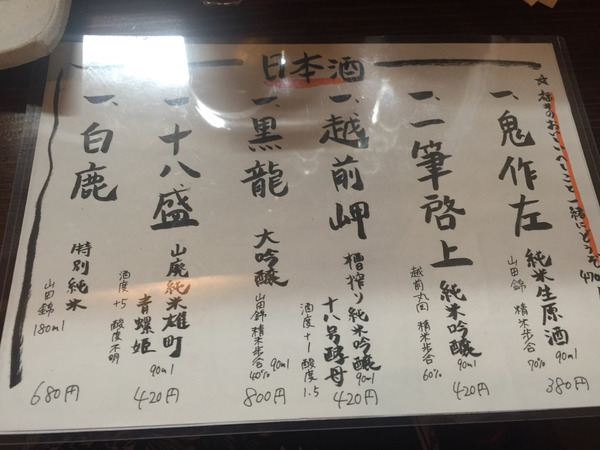 日本酒
一、鬼作左
純米生原酒
山田錦 精米歩合70%
90ml
380円
一、一筆啓上
純米吟醸
精米歩合60%
90ml
420円
一、越前岬
槽搾り純米吟醸
十八号酵母
酒度+1 酸度1.5
90ml
420円
一、黒龍
大吟醸
山田錦 精米歩合40%
90ml
800円
一、十八盛
山廃純米雄町
青螺姫
酒度+5 酸度不明
90ml
420円
一、白鹿
特別純米
山田錦
180ml
680円